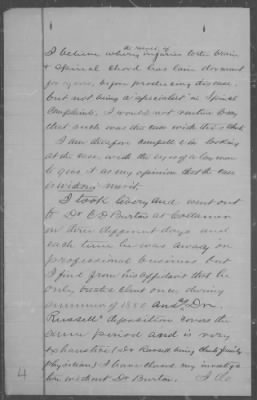 I believe where the result of injuries to the brain
& Spinal Chord has lain dormant
for years, before producing disease
but not being a specialist in Spinal
Complaints I would not venture to say
that such was the case with this
I am therefore compelled in looking
at the case, with the eyes of a layman
to give it as my opinion that the case
is without merit.
I took livery and went out
to Dr E D Burton at
on three different days and
each time he was away on
professional business but
I find from his affidavit that he
only treated Clmt once during
summer of 1880 and Dr.
Russell's deposition covers the
same period and is very
exhaustive (Dr Russell being Clmt's family
physician) I have closed my investiga-
tion without Dr Burton. I do
4